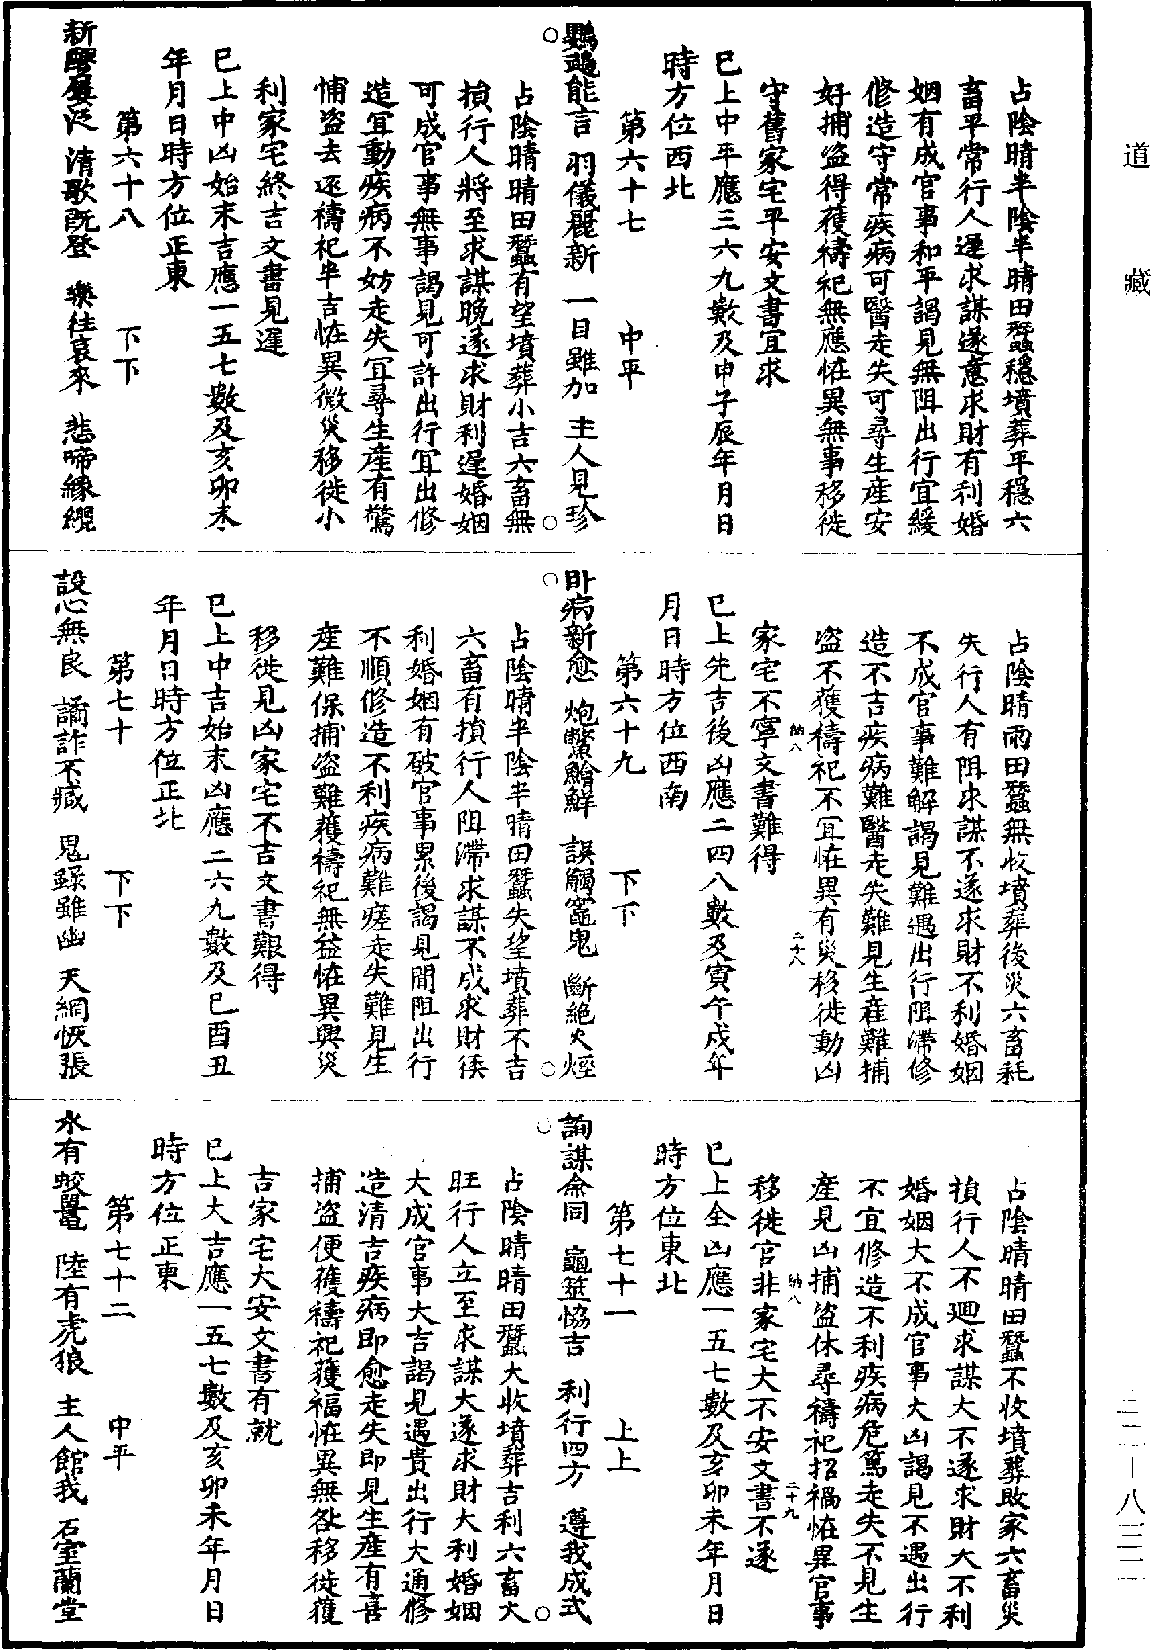 道藏
占陰晴半陰半晴田蠶穩墳葬平穩六
畜平常行人遲求謀遂意求財有利婚
姻有成官事和平謁見無阻出行宜緩
修造守常疾病可醫走失可尋生產安
好捕盜得獲禱祀無應怪異無事移徙
守舊家宅平安文書宜求
巳上中平應三六九數及申子辰年月日
時方位西北
第六十七 中平
鸚鵡能言 羽儀麗新 一目雖加 主人見珍
占陰晴晴田蠶有望墳葬小吉六畜無
損行人將至求謀晚遂求財利遲婚姻
可成官事無事謁見可許出行宜出修
造宜動疾病不妨走失宜尋生產有驚
悑盜去還禱祀半吉怪異微災移徙小
利家宅終吉文書見遲
巳上中凶始末吉應一五七數及亥卯未
年月日時方位正東
第六十八 下下
新醪屢泛 清歌旣登 樂往哀來 悲啼緣纓
占陰晴雨田蠶無收墳葬後災六畜耗
失行人有阻求謀不遂求財不利婚姻
不成官事難解謁見難遇出行阻滯修
造不吉疾病難醫走失難見生產難捕
盜不獲禱祀不宜怪異有災移徙動凶
納八 二十八
家宅不寧文書難得
巳上先吉後凶應二四八數及寅午戌年
月日時方位西南
第六十九 下下
卧病新愈 炮鱉鱠鮮 誤觸竈鬼 斷絶火烟
占陰晴半陰半晴田蠶失望墳葬不吉
六畜有損行人阻滯求謀不成求財後
利婚姻有破官事累後謁見間阻出行
不順修造不利疾病難瘥走失難見生
產難保捕盜難獲禱祀無益怪異興災
移徙見凶家宅不吉文書艱得
巳上中吉始末凶應二六九數及巳酉丑
年月日時方位正北
第七十 下下
設心無良 譎詐不臧 鬼錄雖幽 天網恢張
占陰晴晴田蠶不收墳葬敗家六畜災
損行人不廻求謀大不遂求財大不利
婚姻大不成官事大凶謁見不遇出行
不宜修造不利疾病危篤走失不見生
產見凶捕盜休尋禱祀招禍怪異官事
納八 二十九
移徙官非家宅大不安文書不遂
巳上全凶應一五七數及亥卯未年月日
時方位東北
第七十一 上上
詢謀僉同 龜筮恊吉 利行四方 遵我成式
占陰晴晴田蠶大收墳葬吉利六畜大
旺行人立至求謀大遂求財大利婚姻
大成官事大吉謁見遇貴出行大通修
造清吉疾病即愈走失即見生產有喜
捕盜便獲禱祀獲福怪異無咎移徙獲
吉家宅大安文書有就
巳上大吉應一五七數及亥卯未年月日
時方位正東
第七十二 中平
水有蛟鼉 陸有虎狼 主人館我 石室蘭堂